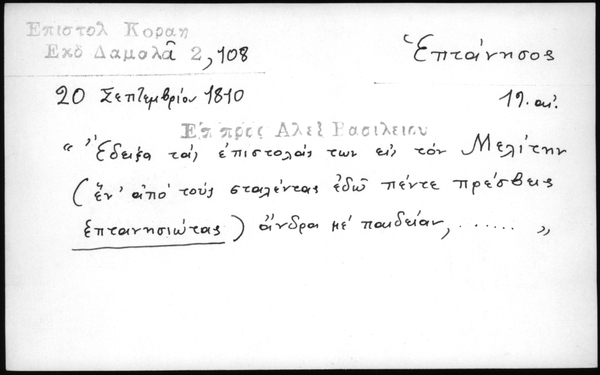 Επιστολ Κοραη
Εκδ Δαμαλᾶ 2, 108
Ἑπτάνησος
20 Σεπτεμβρίου 1810
19. αἰ.
Επ προς Αλεξ Βασιλειου
" Ἔδειξα τάς ἐπιστολάς των εἰς τόν Μελίτην
(ἕν' ἀπό τούς σταλέντας ἐδῶ πέντε πρέσβεις
ἑπτανησιώτας) ἄνδρα μέ παιδείαν, ...... "